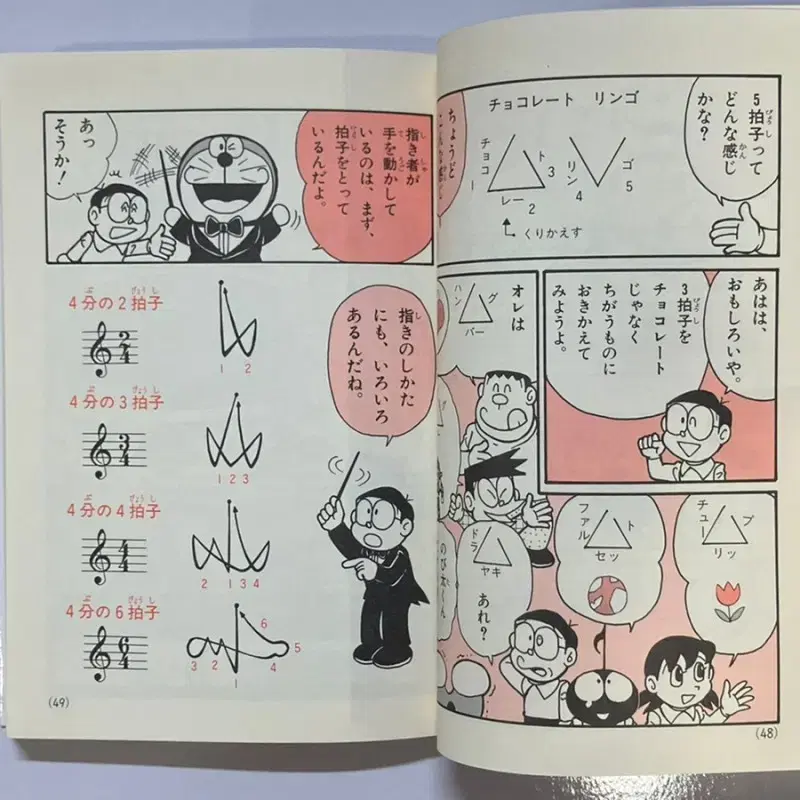 5拍子って
どんな感じ
かな?
チョコレート リンゴ
チョコ
1
レー
2
ト
3
リン
4
ゴ
5
くりかえす
ちょうど
あはは、
おもしろいや。
3拍子を
チョコレート
じゃなく
ちがうものに
おきかえて
みようよ。
オレは
ハン
バー
グ
チュー
リッ
プ
ファル
セッ
ト
ドラ
ヤキ
あれ?
のび太くん
(48)
指き者が
手を動かして
いるのは、まず、
拍子をとって
いるんだよ。
あっ
そうか!
指きのしかた
にも、いろいろ
あるんだね。
4分の2拍子
2
4
1 2
4分の3拍子
3
4
1 2 3
4分の4拍子
4
4
2 1 3 4
4分の6拍子
6
4
6
3 2 5
1 4
(49)